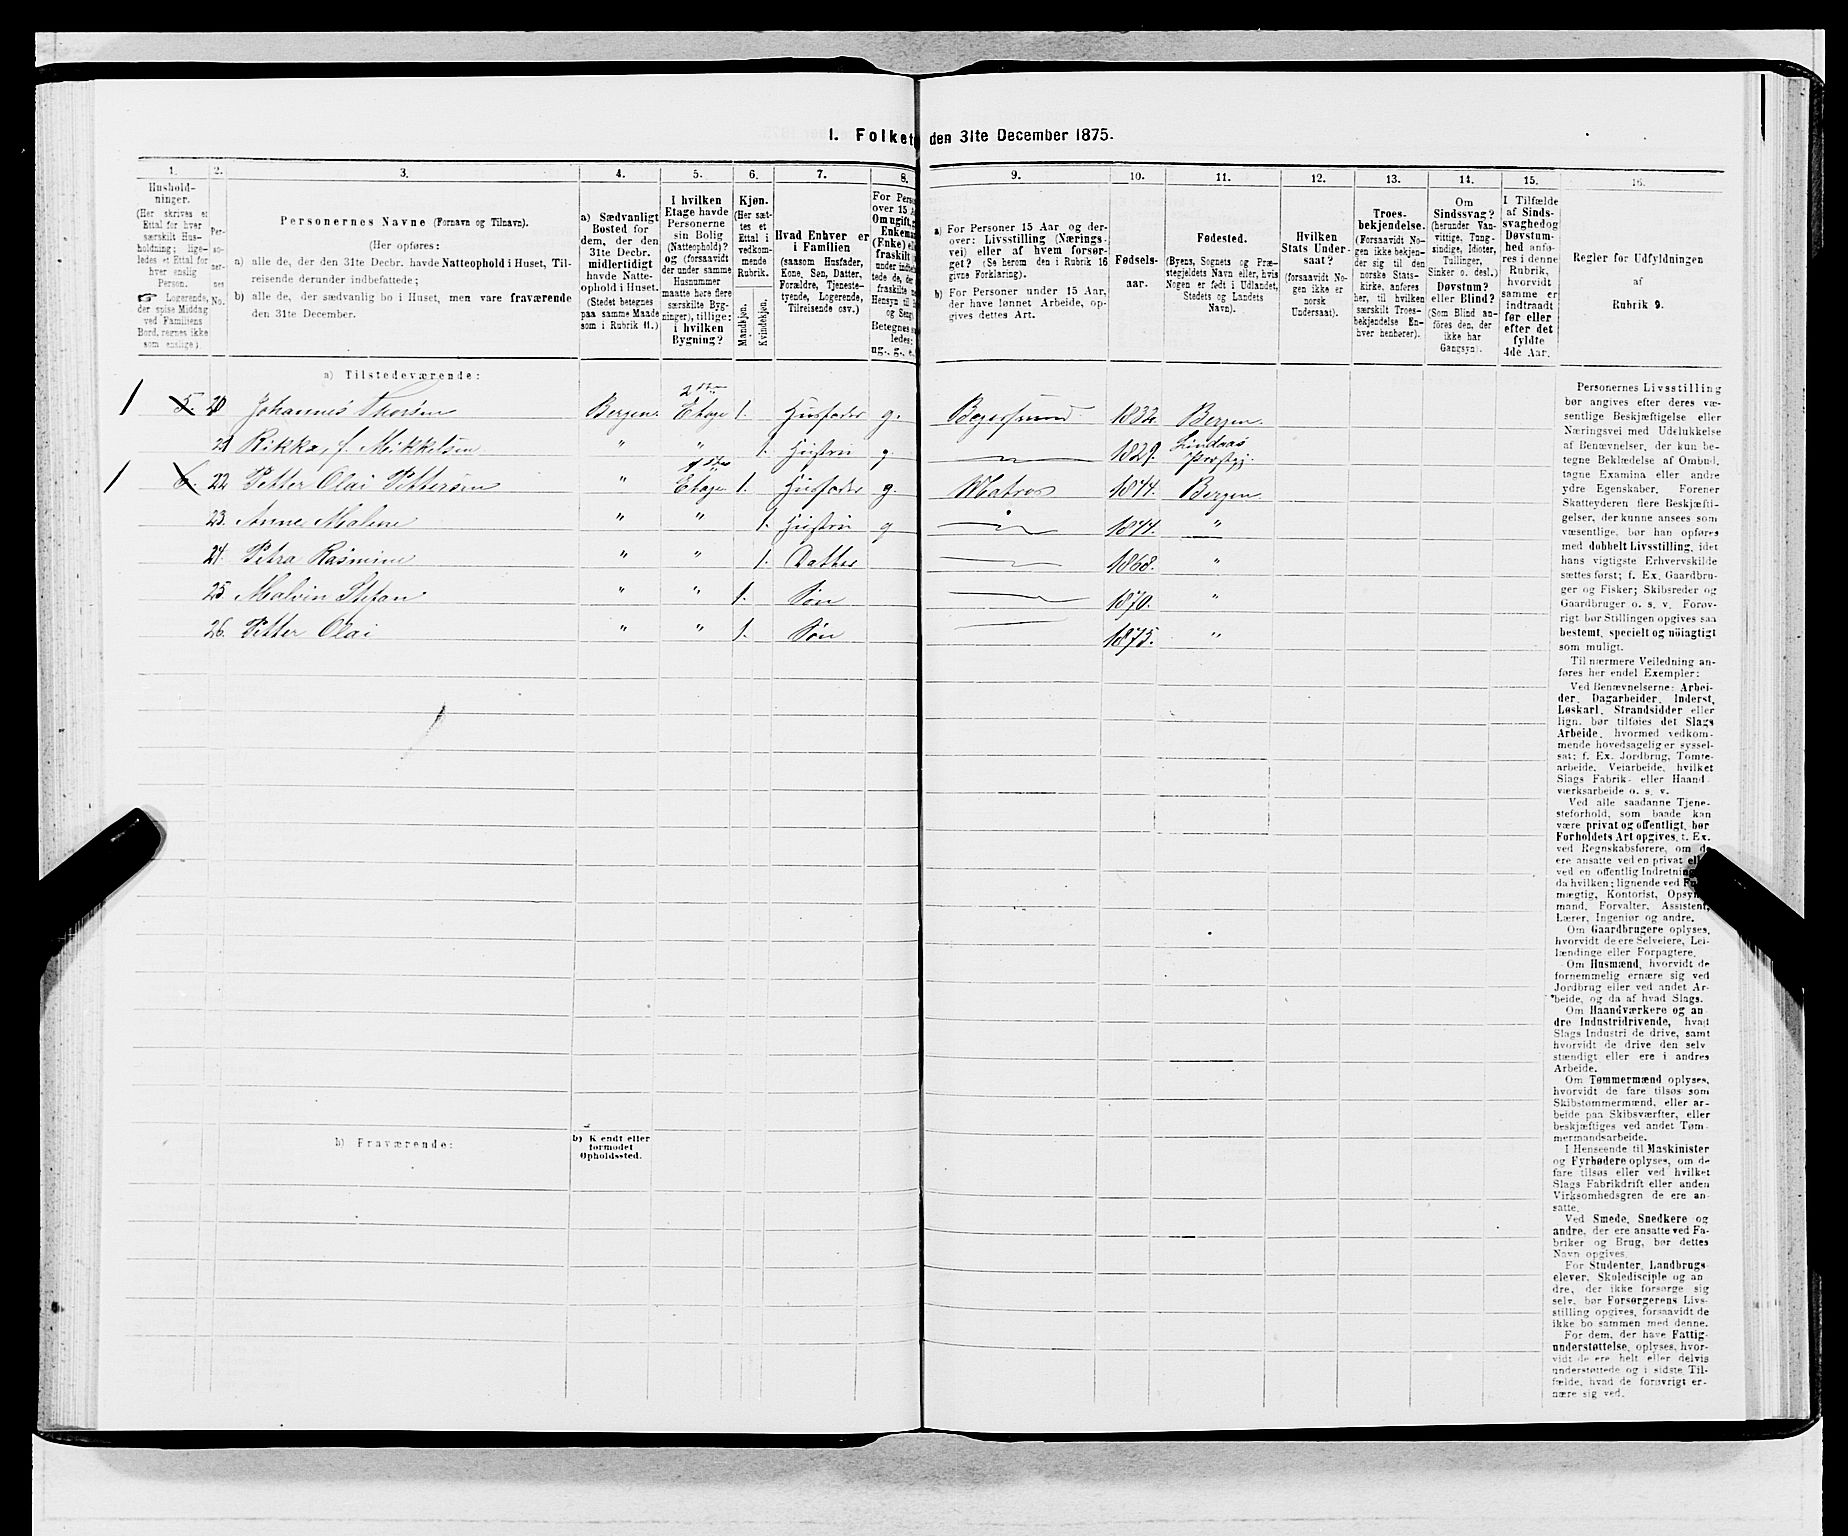 1. Folket den 31te December 1875.
1. 2. 3. 4. 5. 6. 7. 8. 9. 10. 11. 12. 13. 14. 15. 16.
Hushold-
ninger.
(Her skrives et
Ettal for hver
særskilt Hus-
holdning; lige-
ledes et Ettal for
hver enslig
Person.
☞ Logerende,
der spise Middag
ved Familiens
Bord, regnes ikke
som enslige).
Per-
so-
ner-
nes
No.
Personernes Navne (Fornavn og Tilnavn).
(Her opføres:
a) alle de, der den 31te Decbr. havde Natteophold i Huset, Til-
reisende derunder indbefattede;
b) alle de, der sædvanlig bo i Huset, men vare fraværende
den 31te December.
a) Sædvanligt
Bosted for
dem, der den
31te Decbr.
midlertidigt
havde Natte-
ophold i Huset.
(Stedet betegnes
paa samme Maade
som i Rubrik 11.)
I hvilken
Etage havde
Personerne
sin Bolig
(Natteophold)?
og (forsaavidt
der under samme
Husnummer
maatte høre flere
særskilte Byg-
ninger), tillige:
i hvilken
Bygning?
Kjøn.
(Her sæt-
tes et
Ettal i
vedkom-
mende
Rubrik.
Mandkjøn.
Kvindekjøn.
Hvad Enhver er
i Familien
(saasom Husfader,
Kone, Søn, Datter,
Forældre, Tjeneste-
tyende, Logerende,
Tilreisende osv.)
For Pers
over 15 A
Om ugift, g
Enkema
(Enke) el
fraskilt
under indbe
tede de, de
fraskilte
Hensyn til
og Seng
Betegnes s
ledes:
ug., g., e.
a) For Personer 15 Aar og der-
over: Livsstilling (Nærings-
vei) eller af hvem forsør-
get? (Se herom den i Rubrik 16
givne Forklaring).
b) For Personer under 15 Aar,
der have lønnet Arbeide, op-
gives dettes Art.
Fødsels-
aar.
Fødested.
(Byens, Sognets og Præ-
stegjeldets Navn eller, hvis
Nogen er født i Udlandet,
Stedets og Landets
Navn).
Hvilken
Stats Under-
saat?
(forsaavidt No-
gen ikke er
norsk
Undersaat).
Troes-
bekjendelse.
(Forsaavidt No-
gen ikke bekjen-
der sig til den
norske Stats-
kirke, anføres
her, til hvilken
særskilt Troes-
bekjendelse En-
hver henhører).
Om
Sindssvag?
(herunder Van-
vittige, Tung-
sindige, Idioter,
Tullinger,
Sinker o. desl.)
Døvstum?
eller Blind?
(Som Blind an-
føres den, der
ikke har
Gangsyn).
I Tilfælde
af Sinds-
svaghed og
Døvstum-
hed anfø-
res i denne
Rubrik,
hvorvidt
samme er
indtraadt
før eller
efter det
fyldte
4de Aar.
Regler for Udfyldningen
af
Rubrik 9.
a) Tilstedeværende:
1 5. 20 Johannes Thorsen Bergen 2den Etage 1. Husfader g. 1832. Bergen
21 Rikke, f. Mikkelsen " " 1. Hustru g 1829. Lindaas Præstgj.
1 6. 22 Petter Olai Pettersen " 1ste Etage 1. Husfader g. Matros 1844. Bergen
23. Anne Malene " " 1. Hustru g 1844. "
24. Petra Rasmine " " 1. Datter 1868. "
25. Malvin Stefan " " 1. Søn 1870. "
26. Petter Olai " " 1. Søn 1875. "
b) Fraværende:
b) Kendt eller
formodet
Opholdssted.
Personernes Livsstilling
bør angives efter deres væ-
sentlige Beskjæftigelse eller
Næringsvei med Udelukkelse
af Benævnelser, der kun be-
tegne Beklædelse af Ombud,
tagne Examina eller andre
ydre Egenskaber. Forener
Skatteyderen flere Beskjæfti-
gelser, der kunne ansees som
væsentlige, bør han opføres
med dobbelt Livsstilling, idet
hans vigtigste Erhvervskilde
sættes først; f. Ex. Gaardbru-
ger og Fisker; Skibsreder og
Gaardbruger o. s. v. Forøv-
rigt bør Stillingen opgives saa
bestemt, specielt og nöiagtigt
som muligt.
Til nærmere Veiledning an-
føres her endel Exempler:
Ved Benævnelserne: Arbei-
der, Dagarbeider, Inderst,
Løskarl, Strandsidder eller
lign. bør tilføies det Slags
Arbeide, hvormed vedkom-
mende hovedsagelig er syssel-
sat; f. Ex. Jordbrug, Tomte-
arbeide, Veiarbeide, hvilket
Slags Fabrik- eller Haand-
værksarbeide o. s. v.
Ved alle saadanne Tjene-
steforhold, som baade kan
være privat og offentligt, bør
Forholdets Art opgives, t. Ex.
ved Regnskabsførere, om de
ere ansatte ved en privat eller
ved en offentlig Indretning
da hvilken; lignende ved
mægtig, Kontorist, Opsyns-
mand, Forvalter, Assistent,
Lærer, Ingeniør og andre.
Om Gaardbrugere oplyses,
hvorvidt de ere Selveiere, Lei-
lændinge eller Forpagtere.
Om Husmænd, hvorvidt de
fornemmelig ernære sig ved
Jordbrug eller ved andet Ar-
beide, og da af hvad Slags.
Om Haandværkere og an-
dre Industridrivende, hvad
Slags Industri de drive, samt
hvorvidt de drive den selv-
stændigt eller ere i andres
Arbeide.
Om Tømmermænd oplyses,
hvorvidt de fare tilsøs som
Skibstømmermænd, eller ar-
beide paa Skibsværfter, eller
beskjæftiges ved andet Tøm-
mermandsarbeide.
I Henseende til Maskinister
og Fyrbødere oplyses, om de
fare tilsøs eller ved hvilket
Slags Fabrikdrift eller anden
Virksomhedsgren de ere an-
satte.
Ved Smede, Snedkere og
andre, der ere ansatte ved Fa-
briker og Brug, bør dettes
Navn opgives.
For Studenter, Landbrugs-
elever, Skoledisciple og an-
dre, der ikke forsørge sig
selv, bør Forsørgerens Livs-
stilling opgives, forsaavidt de
ikke bo sammen med denne.
For dem, der have Fattig-
understøttelse, oplyses, hvor-
vidt de ere helt eller delvis
understøttede og i sidste Til-
fælde, hvad de forøvrigt er-
nære sig ved.